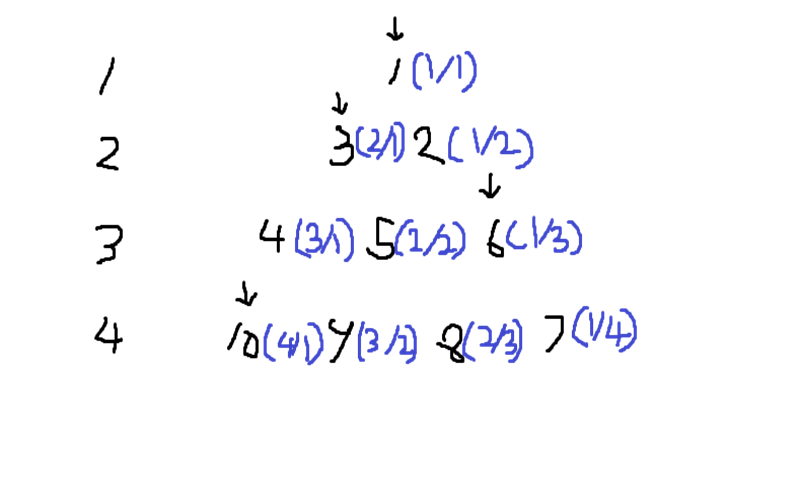 1 1 (1/1)
2 3 (2/1) 2 (1/2)
3 4 (3/1) 5 (2/2) 6 (1/3)
4 10 (4/1) 9 (3/2) 8 (2/3) 7 (1/4)